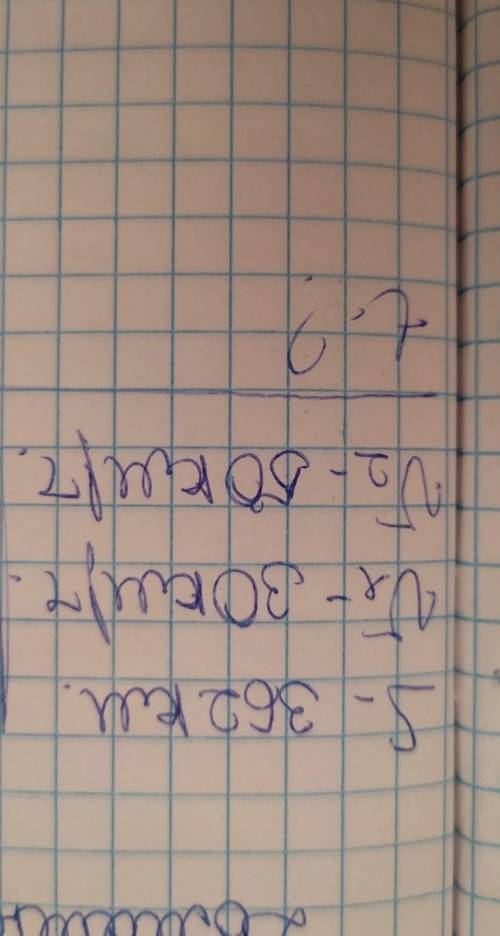 S - 352 км.
V₁ - 30 км/ч.
V₂ - 50 км/ч.
t - ?